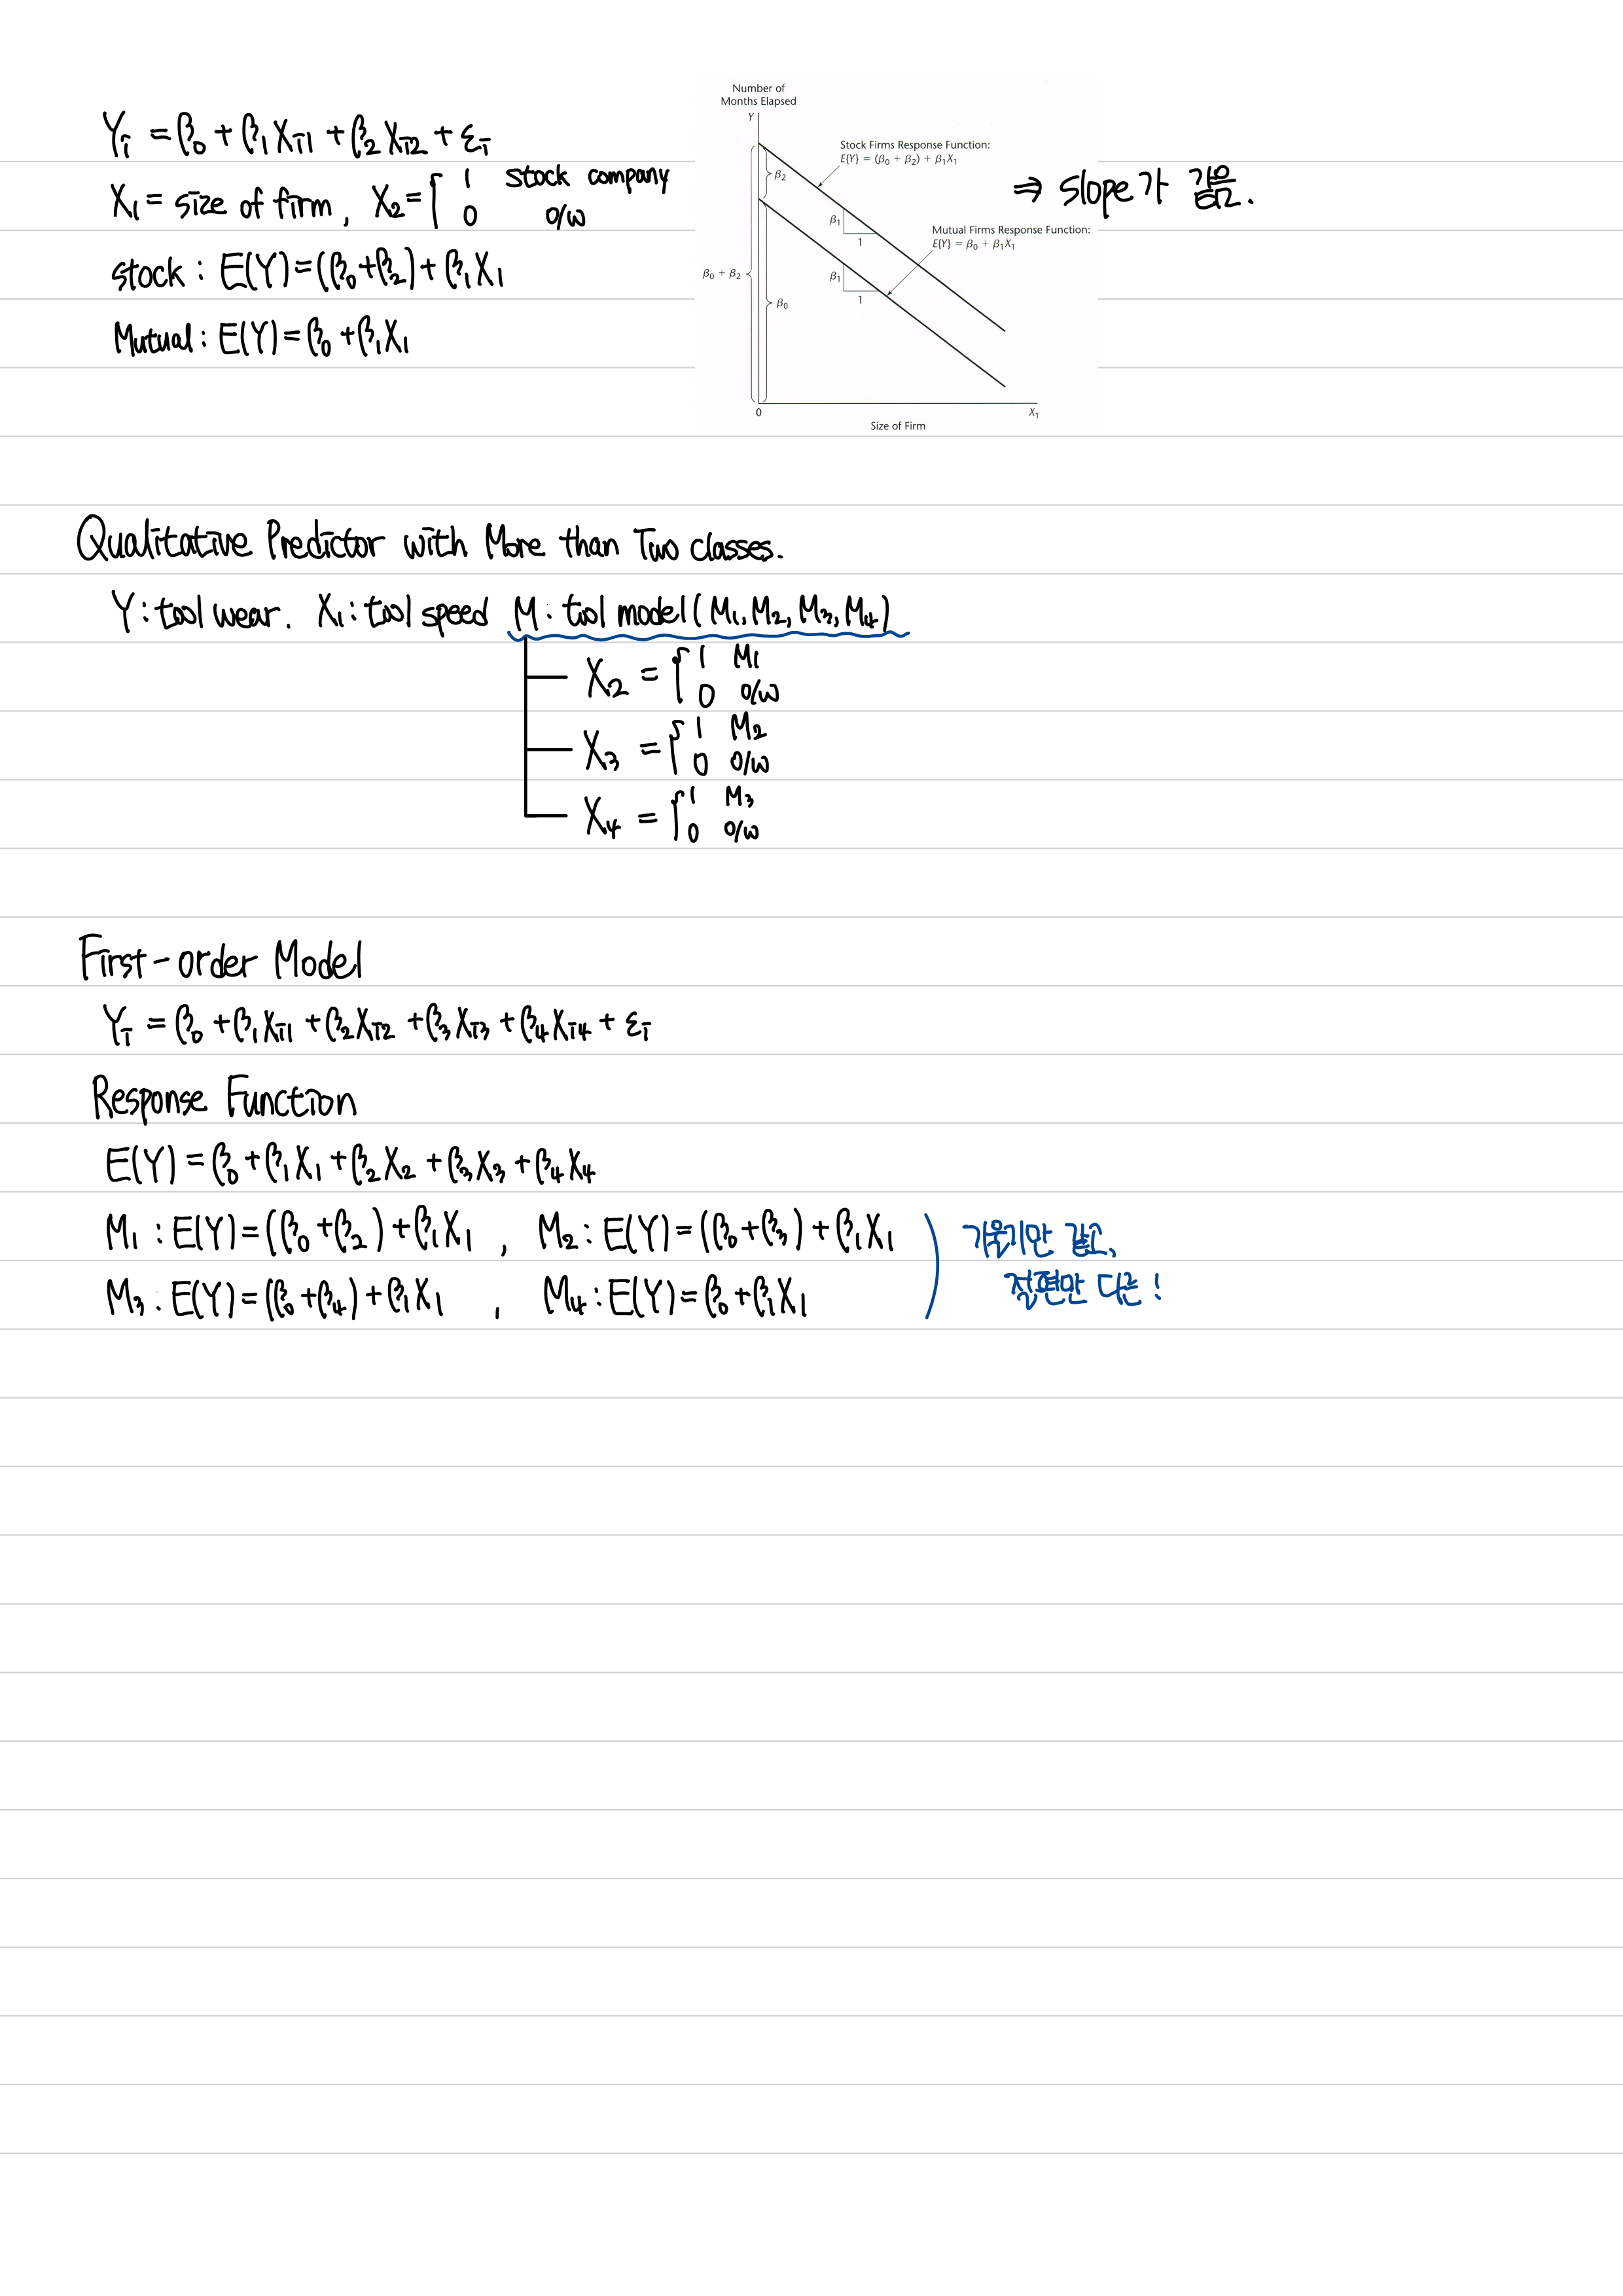 Yᵢ = β₀ + β₁Xᵢ₁ + β₂Xᵢ₂ + εᵢ
X₁ = size of firm, X₂ = { 1 stock company
0 o/w
stock : E(Y) = (β₀+β₂) + β₁X₁
Mutual : E(Y) = β₀ + β₁X₁
Number of
Months Elapsed
Y
Stock Firms Response Function:
E{Y} = (β₀ + β₂) + β₁X₁
β₂
β₁
1
Mutual Firms Response Function:
E{Y} = β₀ + β₁X₁
β₀ + β₂
β₁
1
β₀
0
X₁
Size of Firm
⇒ slope가 같음.
Qualitative Predictor with More than Two classes.
Y : tool wear. X₁ : tool speed M : tool model (M₁, M₂, M₃, M₄)
X₂ = { 1 M₁
0 o/w
X₃ = { 1 M₂
0 o/w
X₄ = { 1 M₃
0 o/w
First-order Model
Yᵢ = β₀ + β₁Xᵢ₁ + β₂Xᵢ₂ + β₃Xᵢ₃ + β₄Xᵢ₄ + εᵢ
Response Function
E(Y) = β₀ + β₁X₁ + β₂X₂ + β₃X₃ + β₄X₄
M₁ : E(Y) = (β₀+β₂) + β₁X₁ , M₂ : E(Y) = (β₀+β₃) + β₁X₁
M₃ : E(Y) = (β₀+β₄) + β₁X₁ , M₄ : E(Y) = β₀ + β₁X₁
기울기만 같고,
절편만 다른!